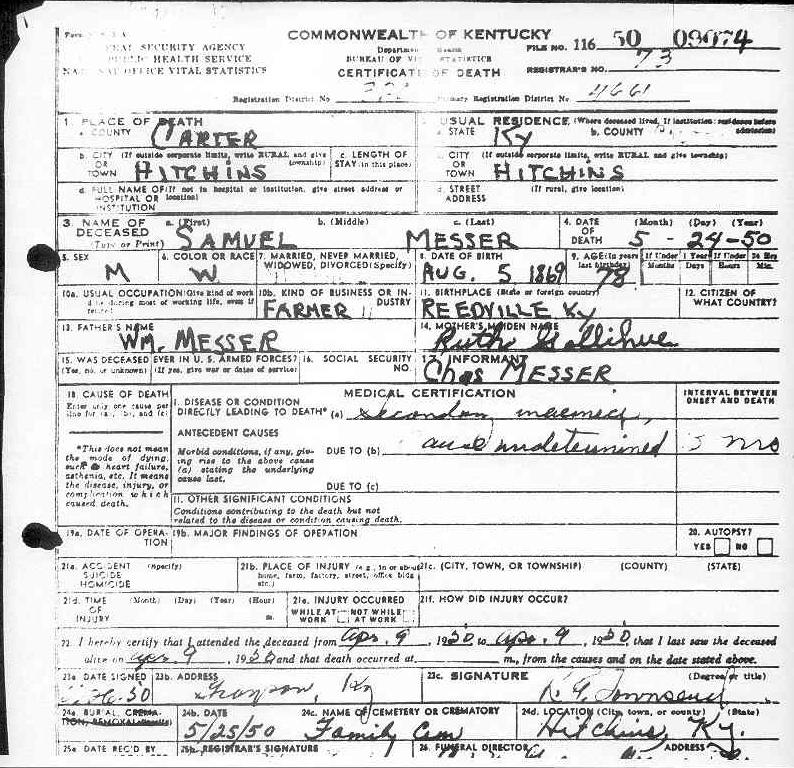 COMMONWEALTH OF KENTUCKY
SECURITY AGENCY
PUBLIC HEALTH SERVICE
NATIONAL OFFICE VITAL STATISTICS
Department Health
BUREAU OF VITAL STATISTICS
CERTIFICATE OF DEATH
FILE NO. 116 50 09074
REGISTRAR'S NO. 73
Registration District No Primary Registration District No 4661
1. PLACE OF DEATH
a. COUNTY CARTER
USUAL RESIDENCE (Where deceased lived, If institution: residence before admission)
a. STATE Ky b. COUNTY
b. CITY (If outside corporate limits, write RURAL and give township)
OR TOWN HITCHINS
c. LENGTH OF STAY (in this place)
c. CITY (If outside corporate limits, write RURAL and give township)
OR TOWN HITCHINS
d. FULL NAME OF (If not in hospital or institution, give street address or location)
HOSPITAL OR INSTITUTION
d. STREET ADDRESS (If rural, give location)
3. NAME OF DECEASED (Type or Print)
a. (First) SAMUEL b. (Middle) c. (Last) MESSER
4. DATE OF DEATH (Month) (Day) (Year) 5 - 24-50
5. SEX M
6. COLOR OR RACE W
7. MARRIED, NEVER MARRIED, WIDOWED, DIVORCED (Specify)
8. DATE OF BIRTH AUG. 5 1869
9. AGE (In years last birthday) 78 If Under 1 Year Months Days If Under 24 Hrs Hours Min.
10a. USUAL OCCUPATION (Give kind of work done during most of working life, even if retired)
10b. KIND OF BUSINESS OR INDUSTRY
FARMER
11. BIRTHPLACE (State or foreign country)
REEDVILLE Ky
12. CITIZEN OF WHAT COUNTRY?
13. FATHER'S NAME
WM. MESSER
14. MOTHER'S MAIDEN NAME
Ruth Gollihue
15. WAS DECEASED EVER IN U. S. ARMED FORCES?
(Yes, no, or unknown) (If yes, give war or dates of service)
16. SOCIAL SECURITY NO.
17. INFORMANT
Chas MESSER
18. CAUSE OF DEATH
Enter only one cause per line for (a), (b), and (c)
MEDICAL CERTIFICATION
INTERVAL BETWEEN ONSET AND DEATH
I. DISEASE OR CONDITION DIRECTLY LEADING TO DEATH* (a) secondary
ANTECEDENT CAUSES
Morbid conditions, if any, giving rise to the above cause (a) stating the underlying cause last.
DUE TO (b) cause undetermined 3 mo
DUE TO (c)
*This does not mean the mode of dying, such as heart failure, asthenia, etc. It means the disease, injury, or complication which caused death.
II. OTHER SIGNIFICANT CONDITIONS
Conditions contributing to the death but not related to the disease or condition causing death.
19a. DATE OF OPERATION
19b. MAJOR FINDINGS OF OPERATION
20. AUTOPSY?
YES NO
21a. ACCIDENT SUICIDE HOMICIDE (Specify)
21b. PLACE OF INJURY (e.g., in or about home, farm, factory, street, office bldg., etc.)
21c. (CITY, TOWN, OR TOWNSHIP) (COUNTY) (STATE)
21d. TIME OF INJURY (Month) (Day) (Year) (Hour) m.
21e. INJURY OCCURRED
WHILE AT WORK NOT WHILE AT WORK
21f. HOW DID INJURY OCCUR?
22. I hereby certify that I attended the deceased from Apr. 9, 1950 to Apr. 9, 1950, that I last saw the deceased
alive on Apr. 9, 1950 and that death occurred at m., from the causes and on the date stated above.
23a. DATE SIGNED
23b. ADDRESS Grayson, Ky
23c. SIGNATURE (Degree or title)
Townsend
24a. BURIAL, CREMATION, REMOVAL (Specify)
24b. DATE 5/25/50
24c. NAME OF CEMETERY OR CREMATORY Family Cem
24d. LOCATION (City, town, or county) (State) Hitchins, Ky.
25a. DATE REC'D BY
25b. REGISTRAR'S SIGNATURE
26. FUNERAL DIRECTOR ADDRESS